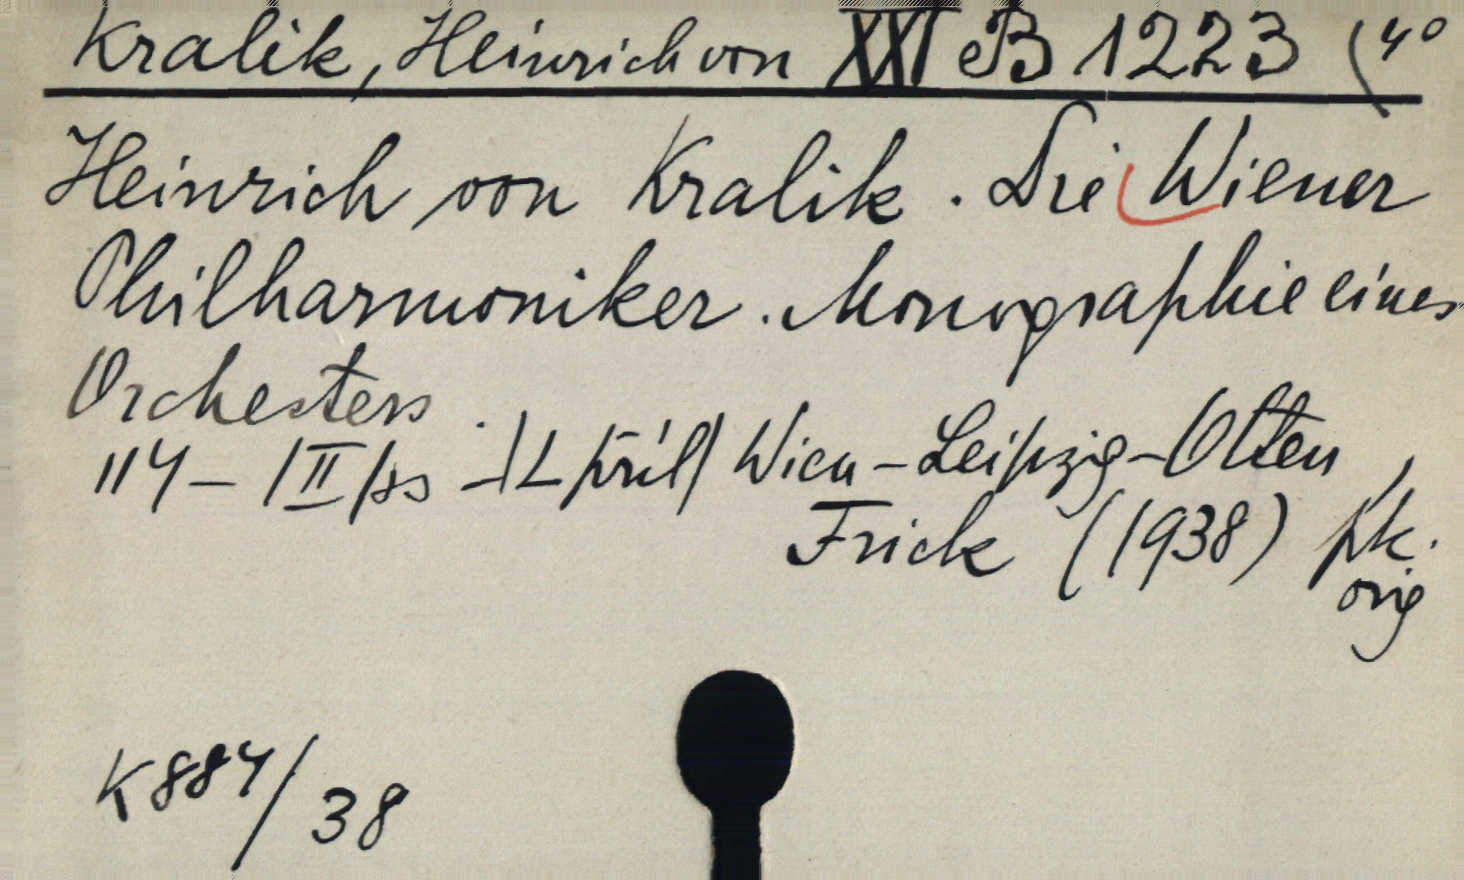 Kralik, Heinrich von XXI B 1223 (4°
Heinrich von Kralik. Die Wiener
Philharmoniker. Monographie eines
Orchesters.
114 – /II/ ss – Wien – Leipzig – Olten,
Frick (1938) pk.
orig
K 884/38